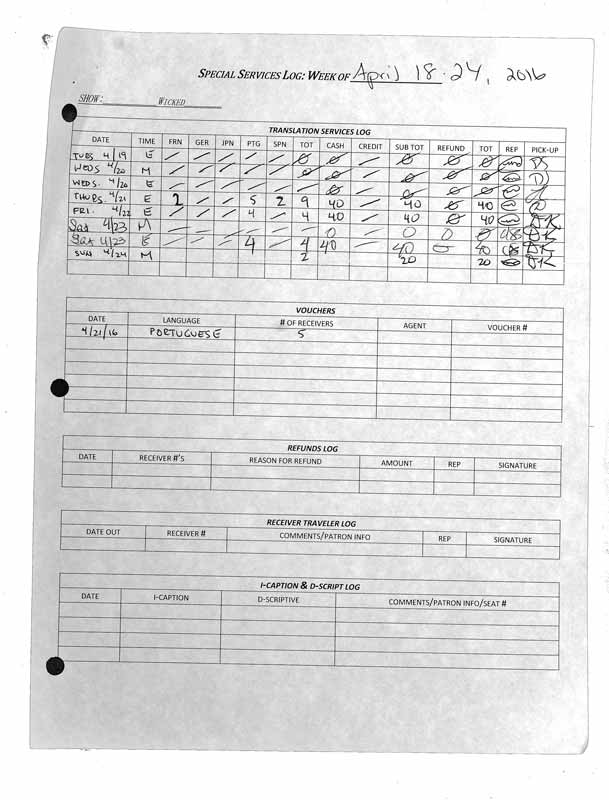 SPECIAL SERVICES LOG: WEEK OF April 18-24, 2016
SHOW: WICKED
TRANSLATION SERVICES LOG
DATE TIME FRN GER JPN PTG SPN TOT CASH CREDIT SUB TOT REFUND TOT REP PICK-UP
TUES 4/19 E / / / / / Ø Ø / Ø Ø Ø DS
WEDS 4/20 M / / / / / Ø Ø / Ø Ø Ø DS
WEDS. 4/20 E / / / / / Ø / Ø Ø Ø
THURS. 4/21 E 2 / / 5 2 9 40 / 40 Ø 40
FRI. 4/22 E / / / 4 / 4 40 / 40 Ø 40 DK
Sat 4/23 M / / / / / 0 / 0 0 0 DK
Sat 4/23 E / / / 4 / 4 40 / 40 0 40 DK
SUN 4/24 M 2 20 20 DK
VOUCHERS
DATE LANGUAGE # OF RECEIVERS AGENT VOUCHER #
4/21/16 PORTUGUESE 5
REFUNDS LOG
DATE RECEIVER #'S REASON FOR REFUND AMOUNT REP SIGNATURE
RECEIVER TRAVELER LOG
DATE OUT RECEIVER # COMMENTS/PATRON INFO REP SIGNATURE
I-CAPTION & D-SCRIPT LOG
DATE I-CAPTION D-SCRIPTIVE COMMENTS/PATRON INFO/SEAT #